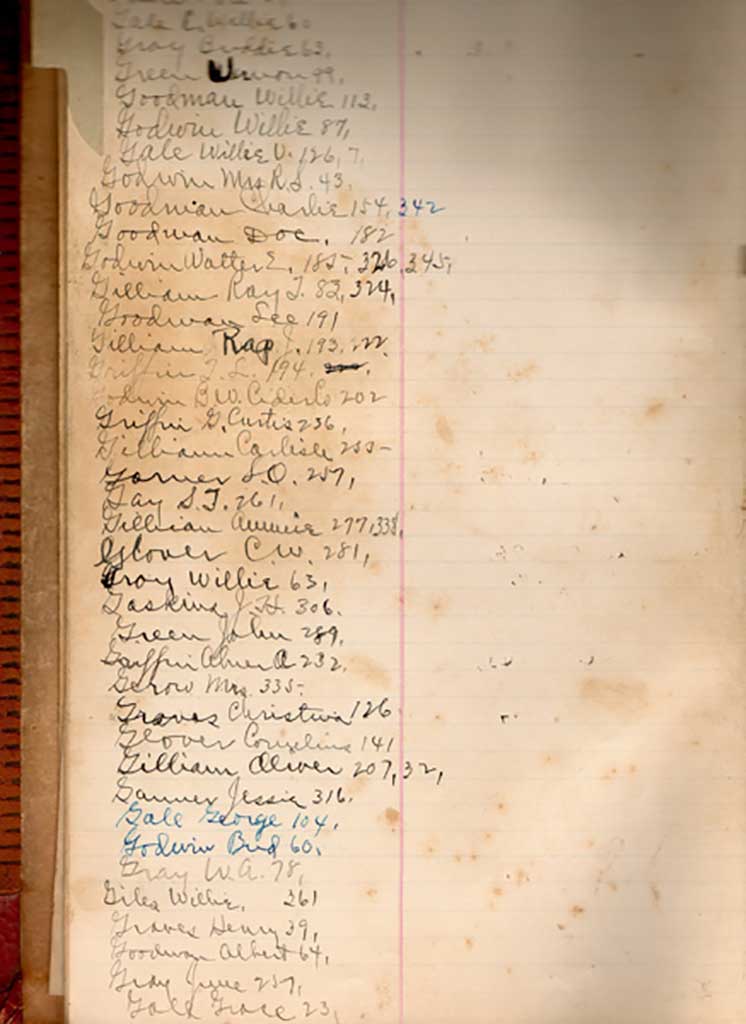 Gale E. Willie 60
Gray Buddie 63,
Green Vernon 99,
Goodman Willie 113,
Godwin Willie 87,
Gale Willie V. 126, 7,
Godwin Mrs R.S. 43.
Goodman Charlie 154, 342
Goodman Doc. 182
Godwin Walter E. 185, 326, 345,
Gilliam Ray J. 83, 324,
Goodman Lee 191
Gilliam Rap J. 193, 222.
Griffin J. L. 194.
Godwin B W. Cider Co 202
Griffin G. Curtis 236,
Gilliam Carlisle 255-
Garner S.O. 257,
Gay S.J. 261,
Gillian Aummie 277, 338,
Glover C.W. 281,
Gray Willie 63,
Gaskins J.H. 306.
Green John 289,
Griffin Abner A 232,
Gerow Mrs. 335-
Graves Christiva 126
Glover Cornelius 141
Gilliam Oliver 207, 32,
Ganner Jessie 316.
Gale George 104,
Godwin Bud 60,
Gray W.A. 78,
Giles Willie, 361
Graves Henry 39,
Goodman Albert 64,
Gray June 257,
Gale Grace 23,